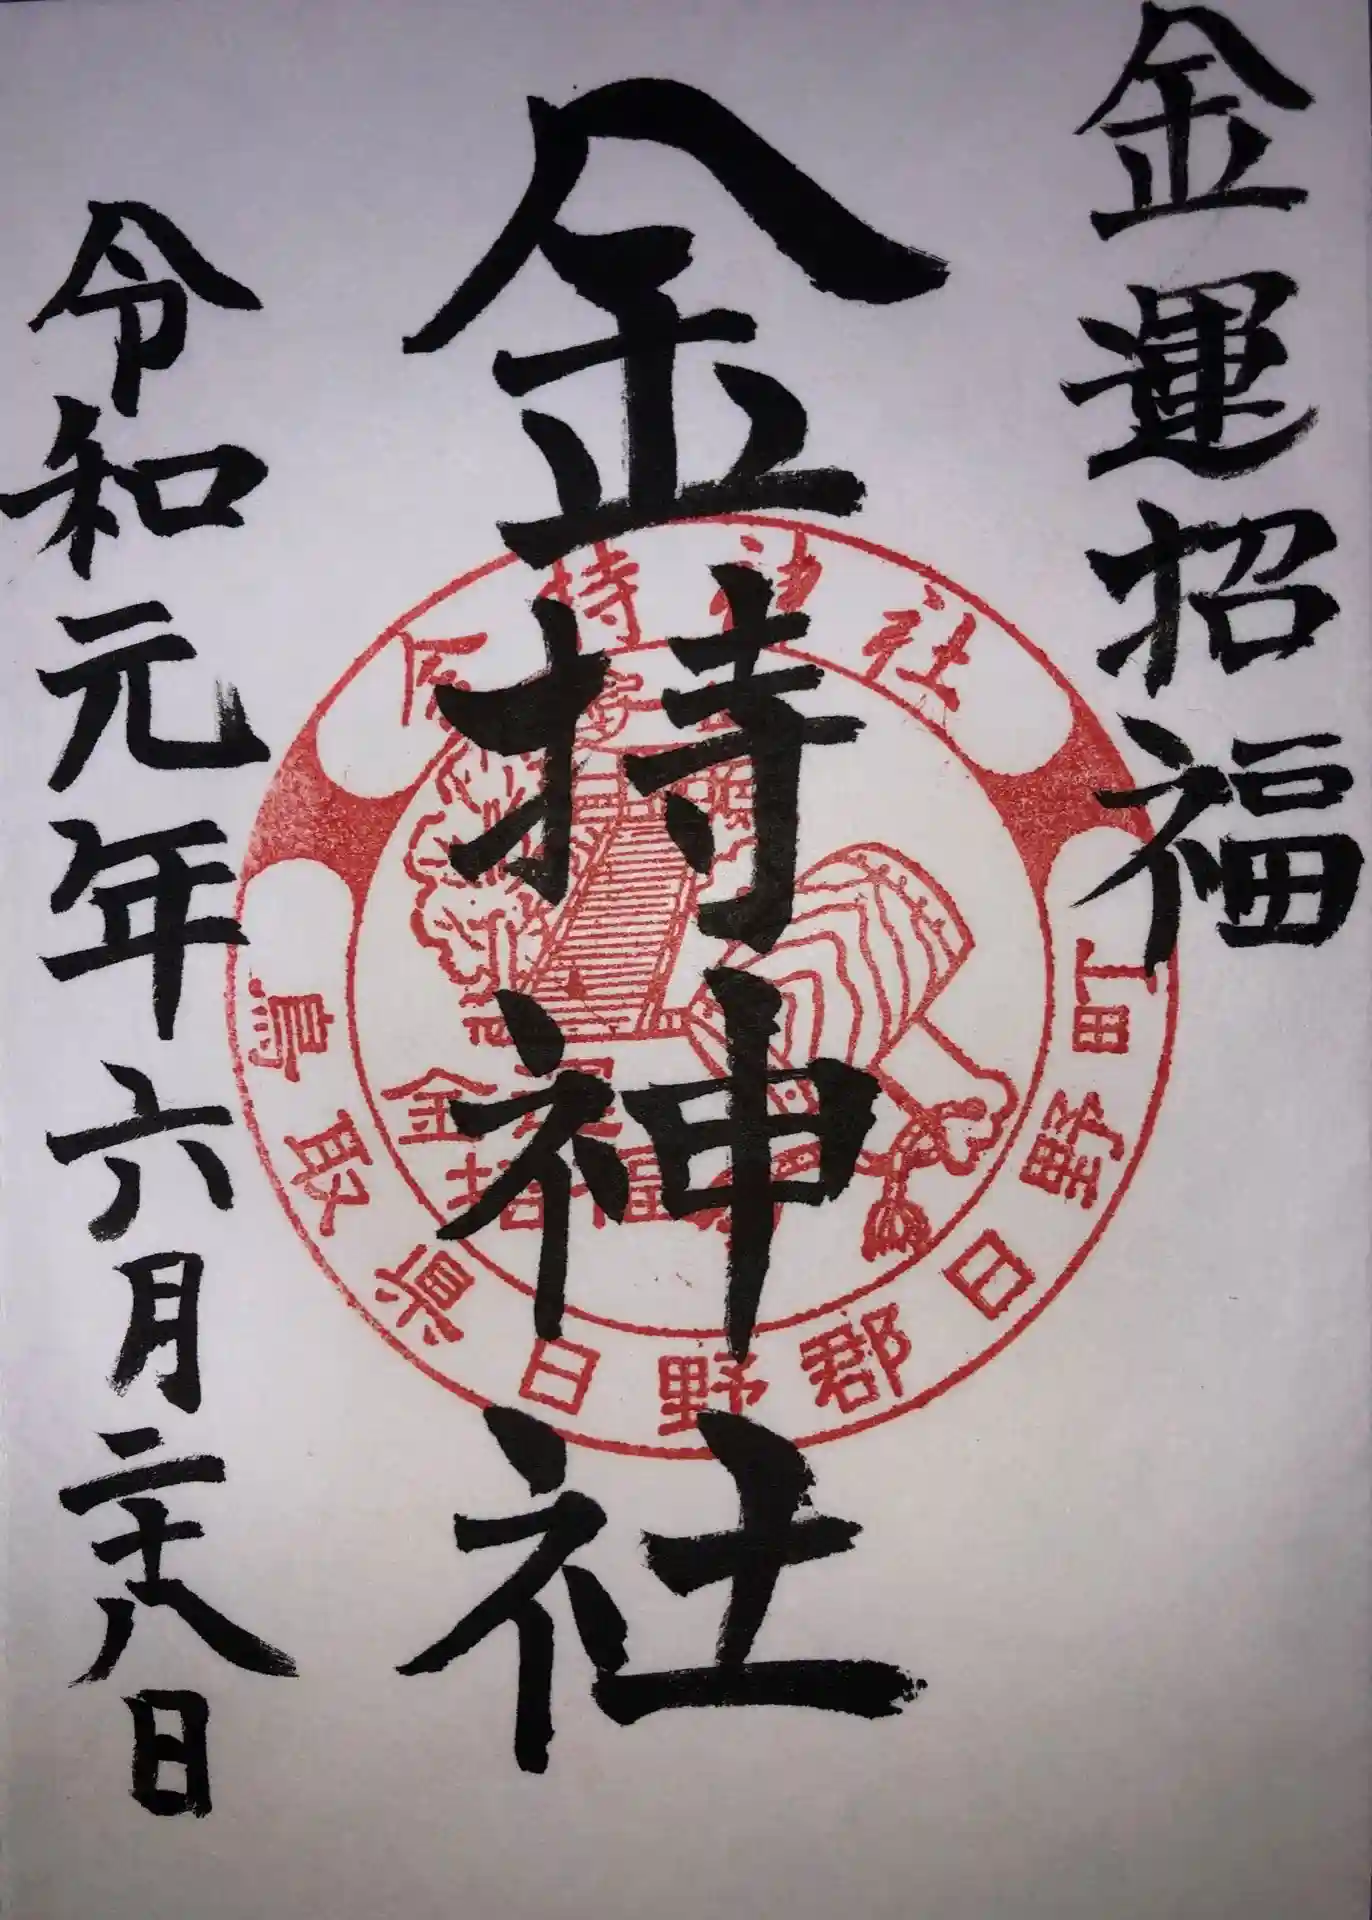 金運招福
金持神社
令和元年六月二十八日
金持神社
鳥取県日野郡日野町
金運
招福